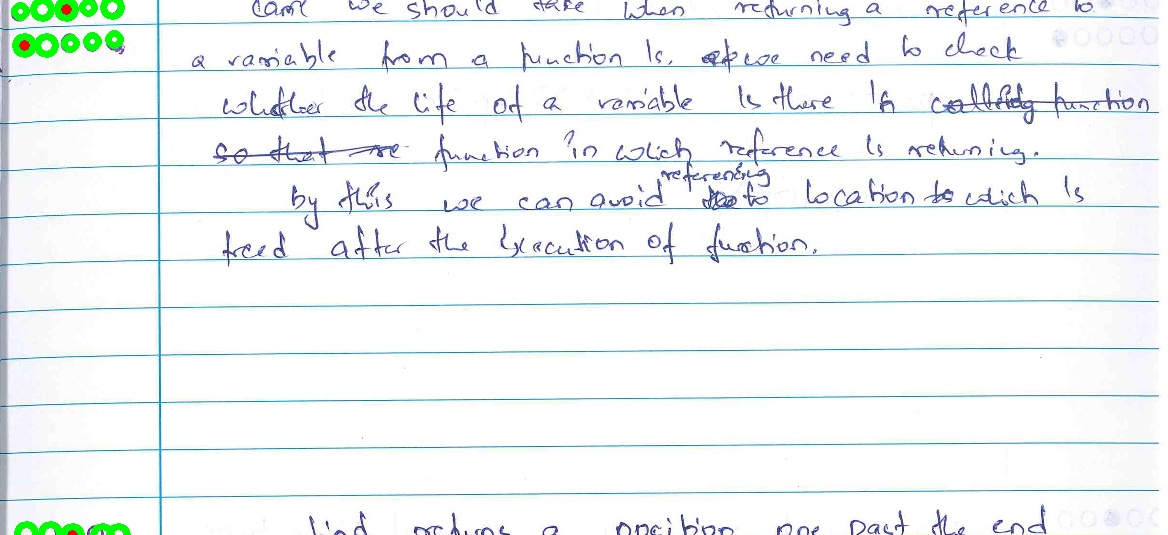 care we should take when returning a reference to
a variable from a function is, we need to check
whether the life of a variable is there in calling function
so that function in which reference is returning.
referencing
by this we can avoid to location to which is
freed after the execution of function.
find returns a position one past the end